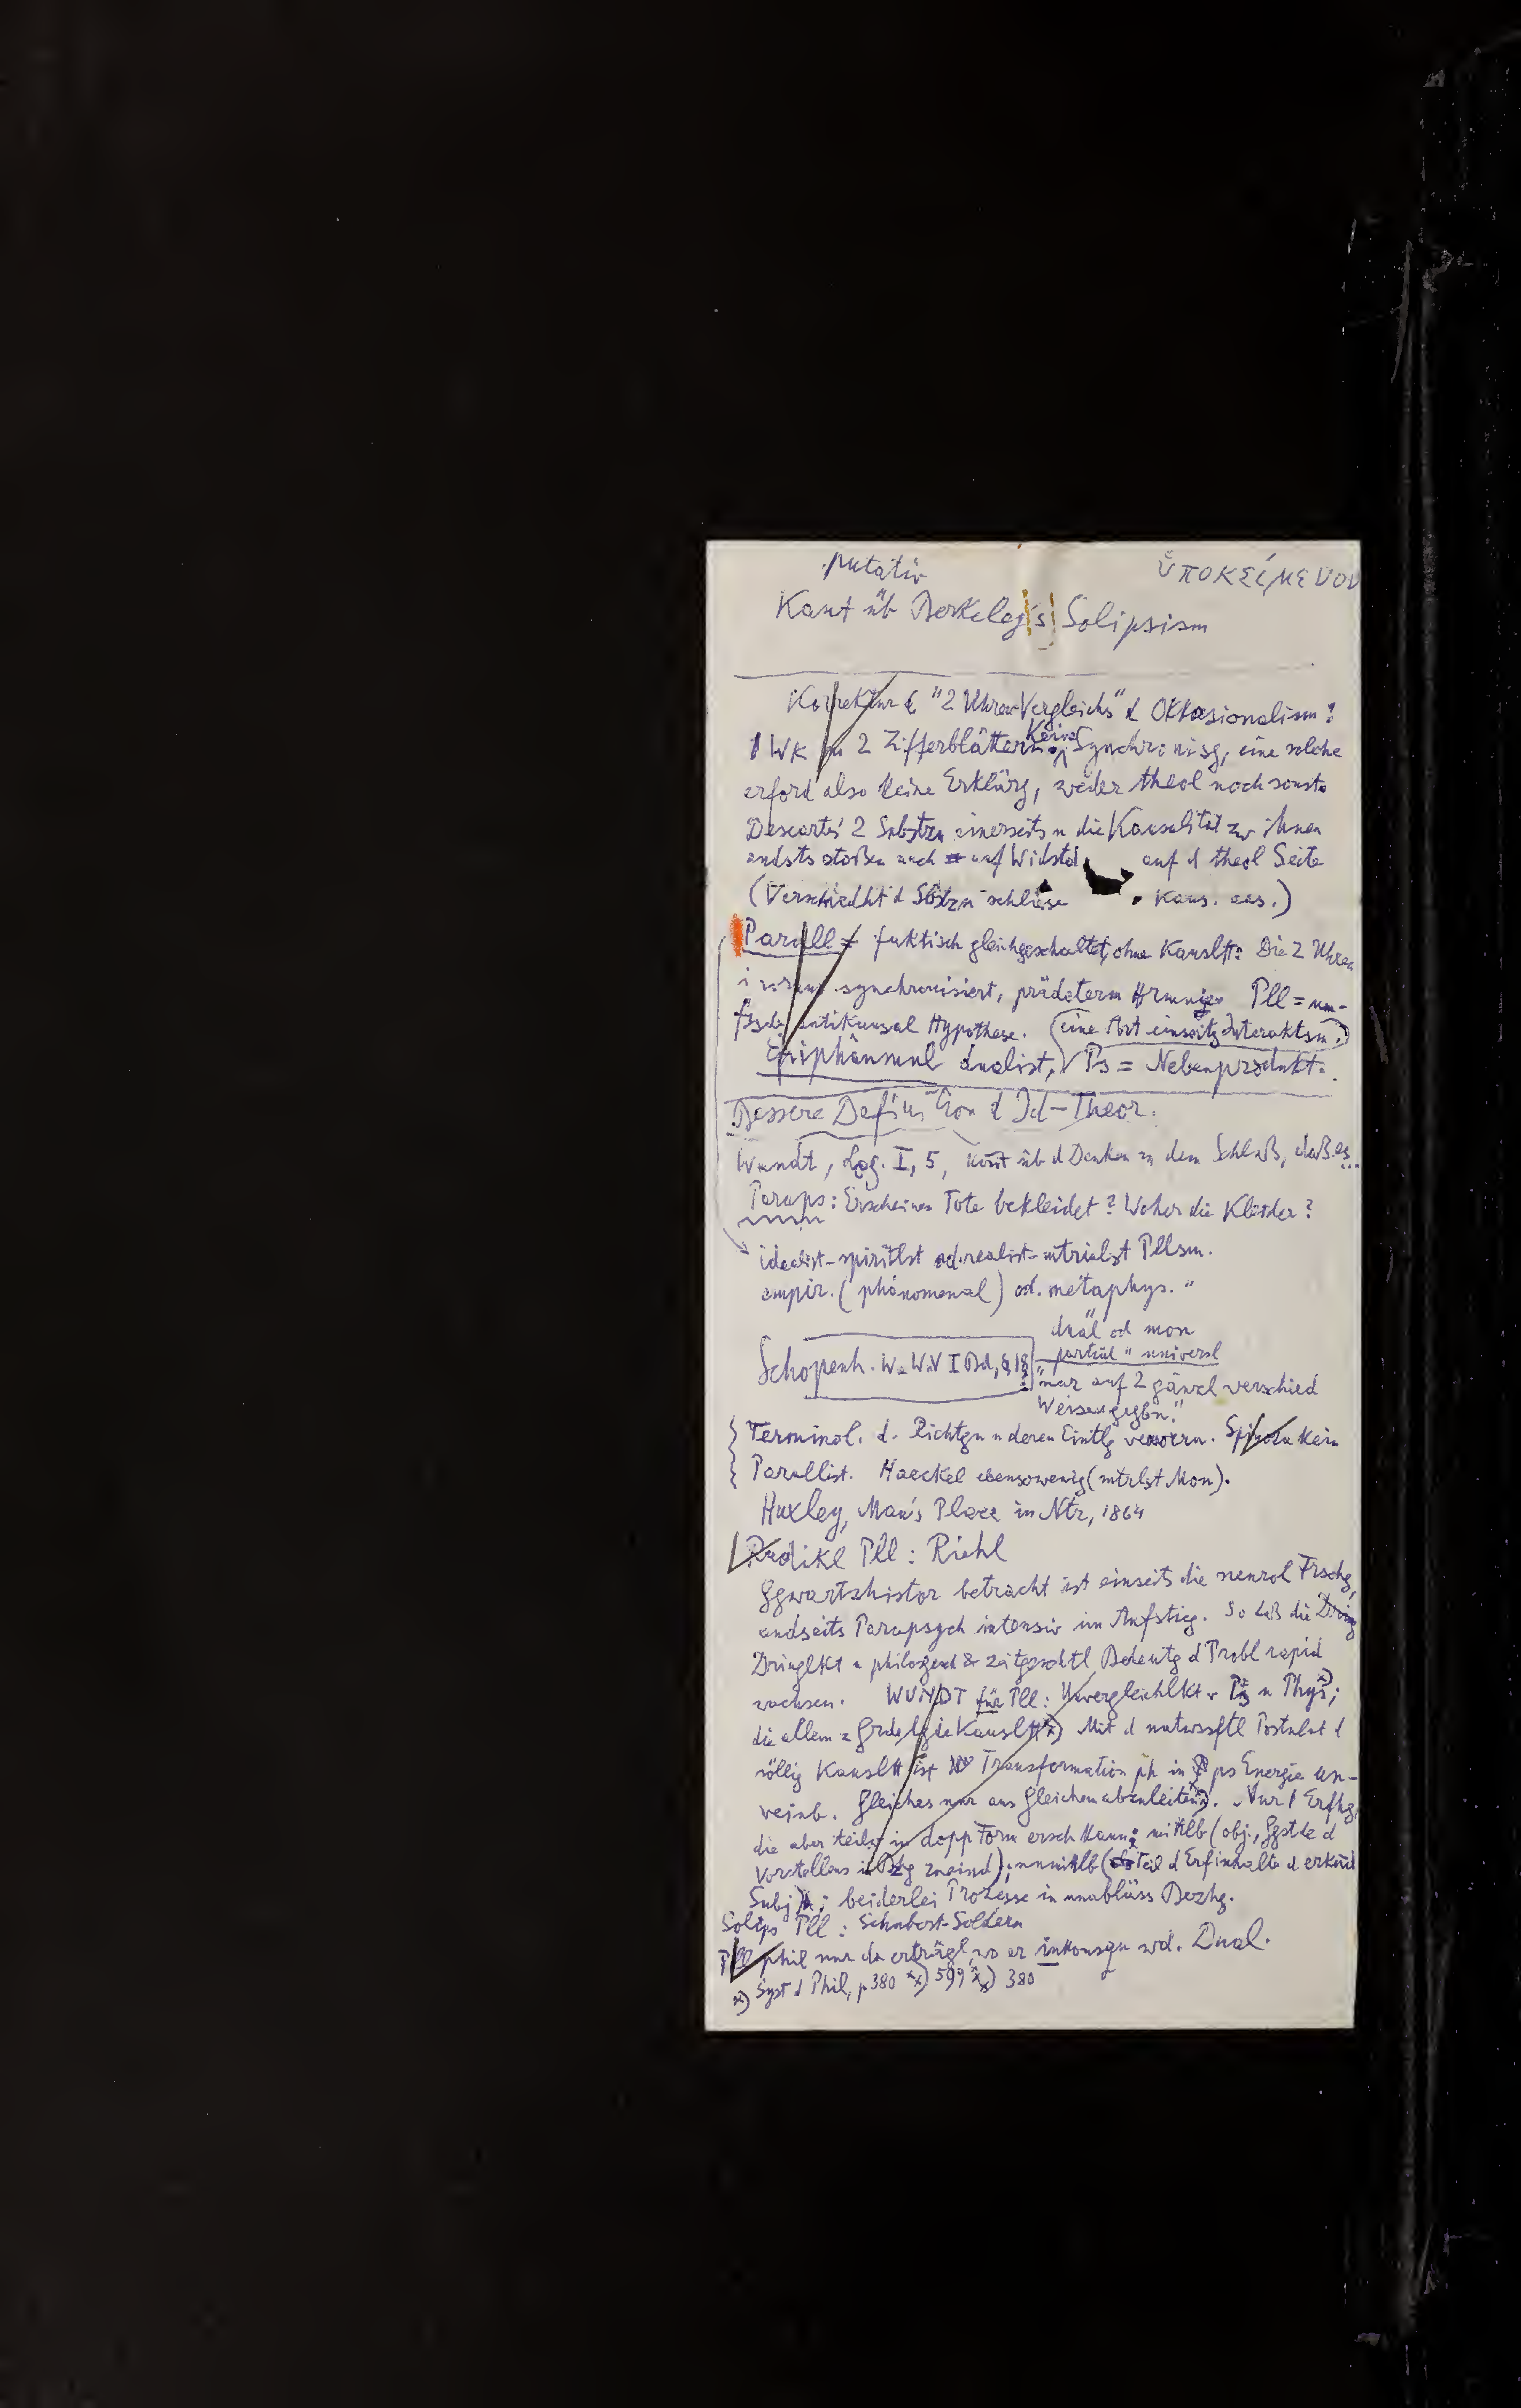 putativ ὑποκείμενον
Kant üb Berkeley's Solipsism
Korrektur d "2 Uhren-Vergleichs" d Okkasionalism:
1 Wk m 2 Zifferblättern. Keine Synchronisg, eine solche
erford also keine Erklärg, weder theol noch sonst.
Descartes' 2 Substzn einerseits u die Kausalität zw ihnen
andsts stoßen auch auf Widstd auf d theol Seite
(Verschiedht d Sbstzn schlösse Kaus. aus.)
Parall ≠ faktisch gleichgeschaltet, ohne Kauslt: Die 2 Uhren
i voraus synchronisiert, prädeterm Hrmnie. Pll = um-
fssde antikausal Hypothese. (eine Art einseitg Interaktsm.)
Epiphänmnl dualist, Ps = Nebenprodukt.
Bessere Definition d Id-Theor.
Wundt, Log. I, 5, üb d Denken zu dem Schluß, daß es...
Paraps: Erscheinen Tote bekleidet? Woher die Kleider?
idealist-spiritlst od. realist-mtrialst Pllsm.
empir. (phänomenal) od. metaphys. "
dual od mon "
partial " universl
Schopenh. W. W. V I Bd, § 18: "nur auf 2 gänzl verschied
Weisen gegbn."
Terminol. d. Richtgn u deren Eintlg verworrn. Spinoza kein
Parallist. Haeckel ebensowenig (mtrlst Mon).
Huxley, Man's Place in Ntr, 1864
Radikl Pll: Riehl
Ggwartshistor betracht ist einseits die neurol Frschg,
andseits Parapsych intensiv im Aufstieg. So daß die
Dringlkt u philosgesch & zeitgeschtl Bedeutg d Probl rapid
wachsen. WUNDT für Pll: Unvergleichlkt v Ps u Phys x);
die allem z Grde lgde Kauslt xx) Mit d natwssftl Postulat d
völlig Kauslt ist Transformation ph in ps Energie un-
veinb. Gleiches nur aus Gleichem abzuleiten x). Nur 1 Erfhg,
die aber teils in dopp Form ersch kann: mittlb (obj., Ggstde d
Vorstellens i Bzg zueind); unmittlb (Teil d Erfinhalte d erknd
Subj); beiderlei Prozesse in unabläss Bezhg.
Solips Pll: Schubert-Soldern
Pll phil nur da erträgl, wo er inkonsqu wd. Dual.
x) Syst d Phil, p 380 xx) 599 x) 380